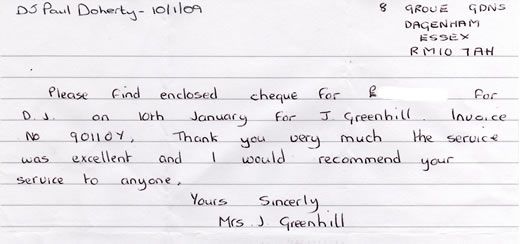 DJ Paul Doherty - 10/1/09
8 GROVE GDNS
DAGENHAM
ESSEX
RM10 7AH
Please find enclosed cheque for £ for
D.J. on 10th January for J Greenhill. Invoice
No 901104. Thank you very much the service
was excellent and I would recommend your
service to anyone.
Yours Sincerly
Mrs J. Greenhill